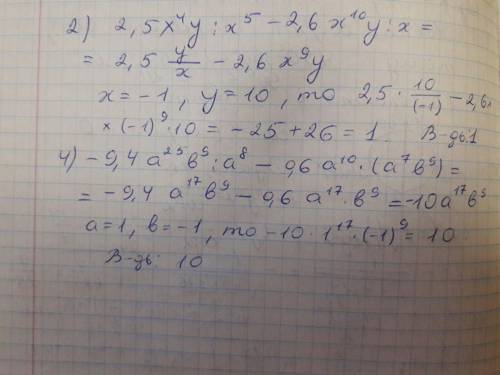 2) 2,5x⁴y : x⁵ - 2,6x¹⁰y : x =
= 2,5 y/x - 2,6 x⁹y
x = -1, y = 10, то 2,5 · 10/(-1) - 2,6 ·
× (-1)⁹ · 10 = -25 + 26 = 1. В-дь: 1
4) - 9,4 a²⁵ b⁹ : a⁸ - 0,6 a¹⁰ · (a⁷b⁹) =
= - 9,4 a¹⁷ b⁹ - 0,6 a¹⁷ · b⁹ = -10a¹⁷b⁹
a = 1, b = -1, то -10 · 1¹⁷ · (-1)⁹ = 10
В-дь: 10